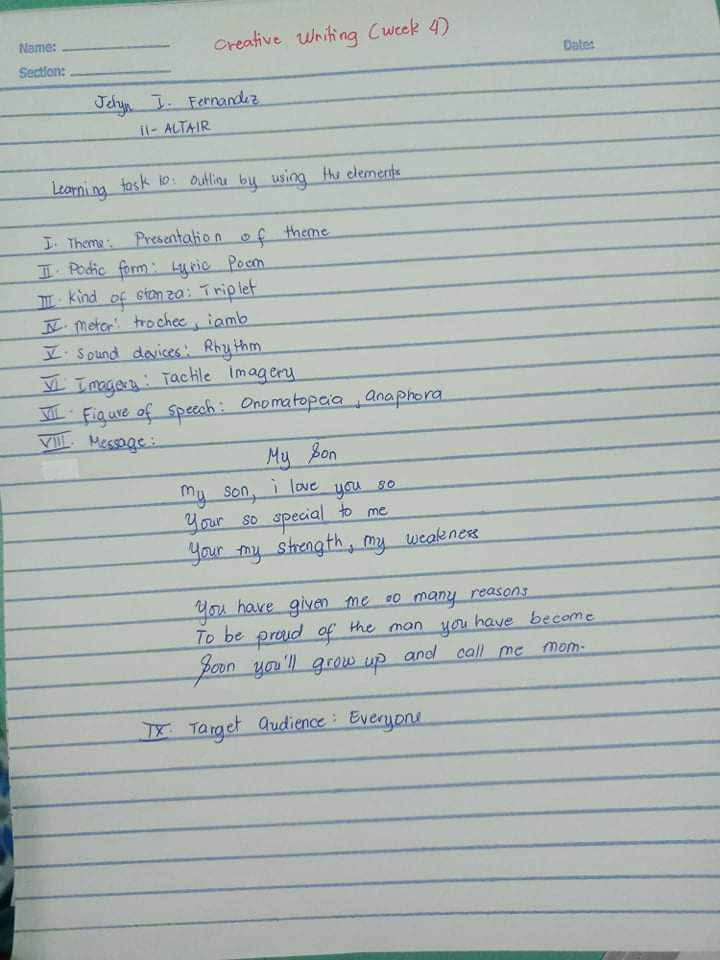 Creative Writing (week 4)
Name:
Date:
Section:
Jelyn I. Fernandez
11- ALTAIR
Learning task 10: Outline by using the elements
I. Theme: Presentation of theme
II. Poetic form: Lyric Poem
III. Kind of stanza: Triplet
IV. Meter: trochee, iamb
V. Sound devices: Rhythm
VI. Imagery: Tactile Imagery
VII. Figure of speech: Onomatopeia, anaphora
VIII. Message:
My Son
My son, i love you so
Your so special to me
Your my strength, my weakness
You have given me so many reasons
To be proud of the man you have become
Soon you'll grow up and call me mom.
IX. Target Audience: Everyone